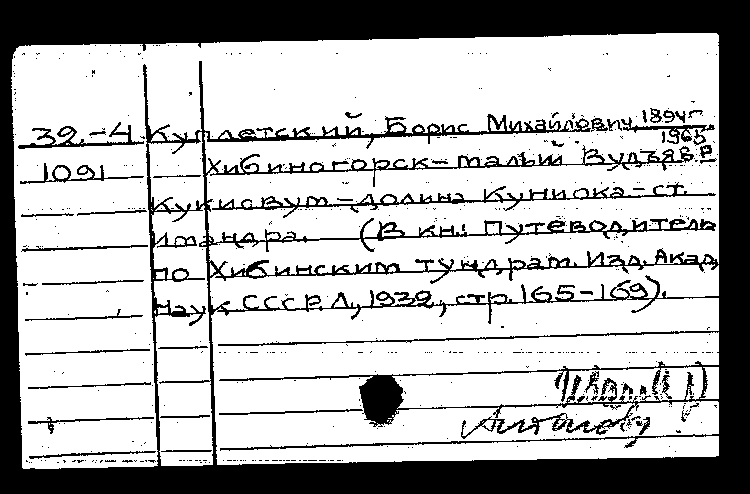 32.-4 Куплетский, Борис Михайлович, 1894-1965
1091 Хибиногорск-малый Вудъявр
Кукисвум-долина Куниока-ст.
Имандра. (В кн.: Путеводитель
по Хибинским тундрам. Изд. Акад.
Наук СССР. Л., 1932, стр. 165-169).